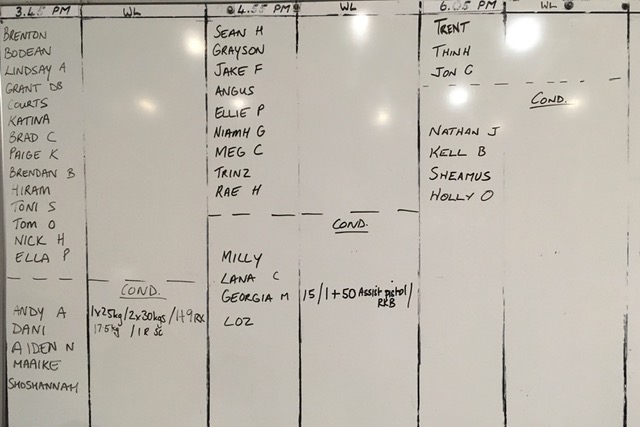 3.45 PM WL
BRENTON
BODEAN
LINDSAY A
GRANT DB
COURTS
KATINA
BRAD C
PAIGE K
BRENDAN B
HIRAM
TONI S
TOM O
NICK H
ELLA P
COND.
ANDY A 1x25kg/2x30kgs/149 RX
DANI 17.5kg /1R SC
AIDEN N
MAAIKE
SHOSHANNAH
4.55 PM WL
SEAN H
GRAYSON
JAKE F
ANGUS
ELLIE P
NIAMH G
MEG C
TRINZ
RAE H
COND.
MILLY
LANA C
GEORGIA M 15/1+50 Assist pistol/
RKB
LOZ
6.05 PM WL
TRENT
THINH
JON G
COND.
NATHAN J
KELL B
SHEAMUS
HOLLY O